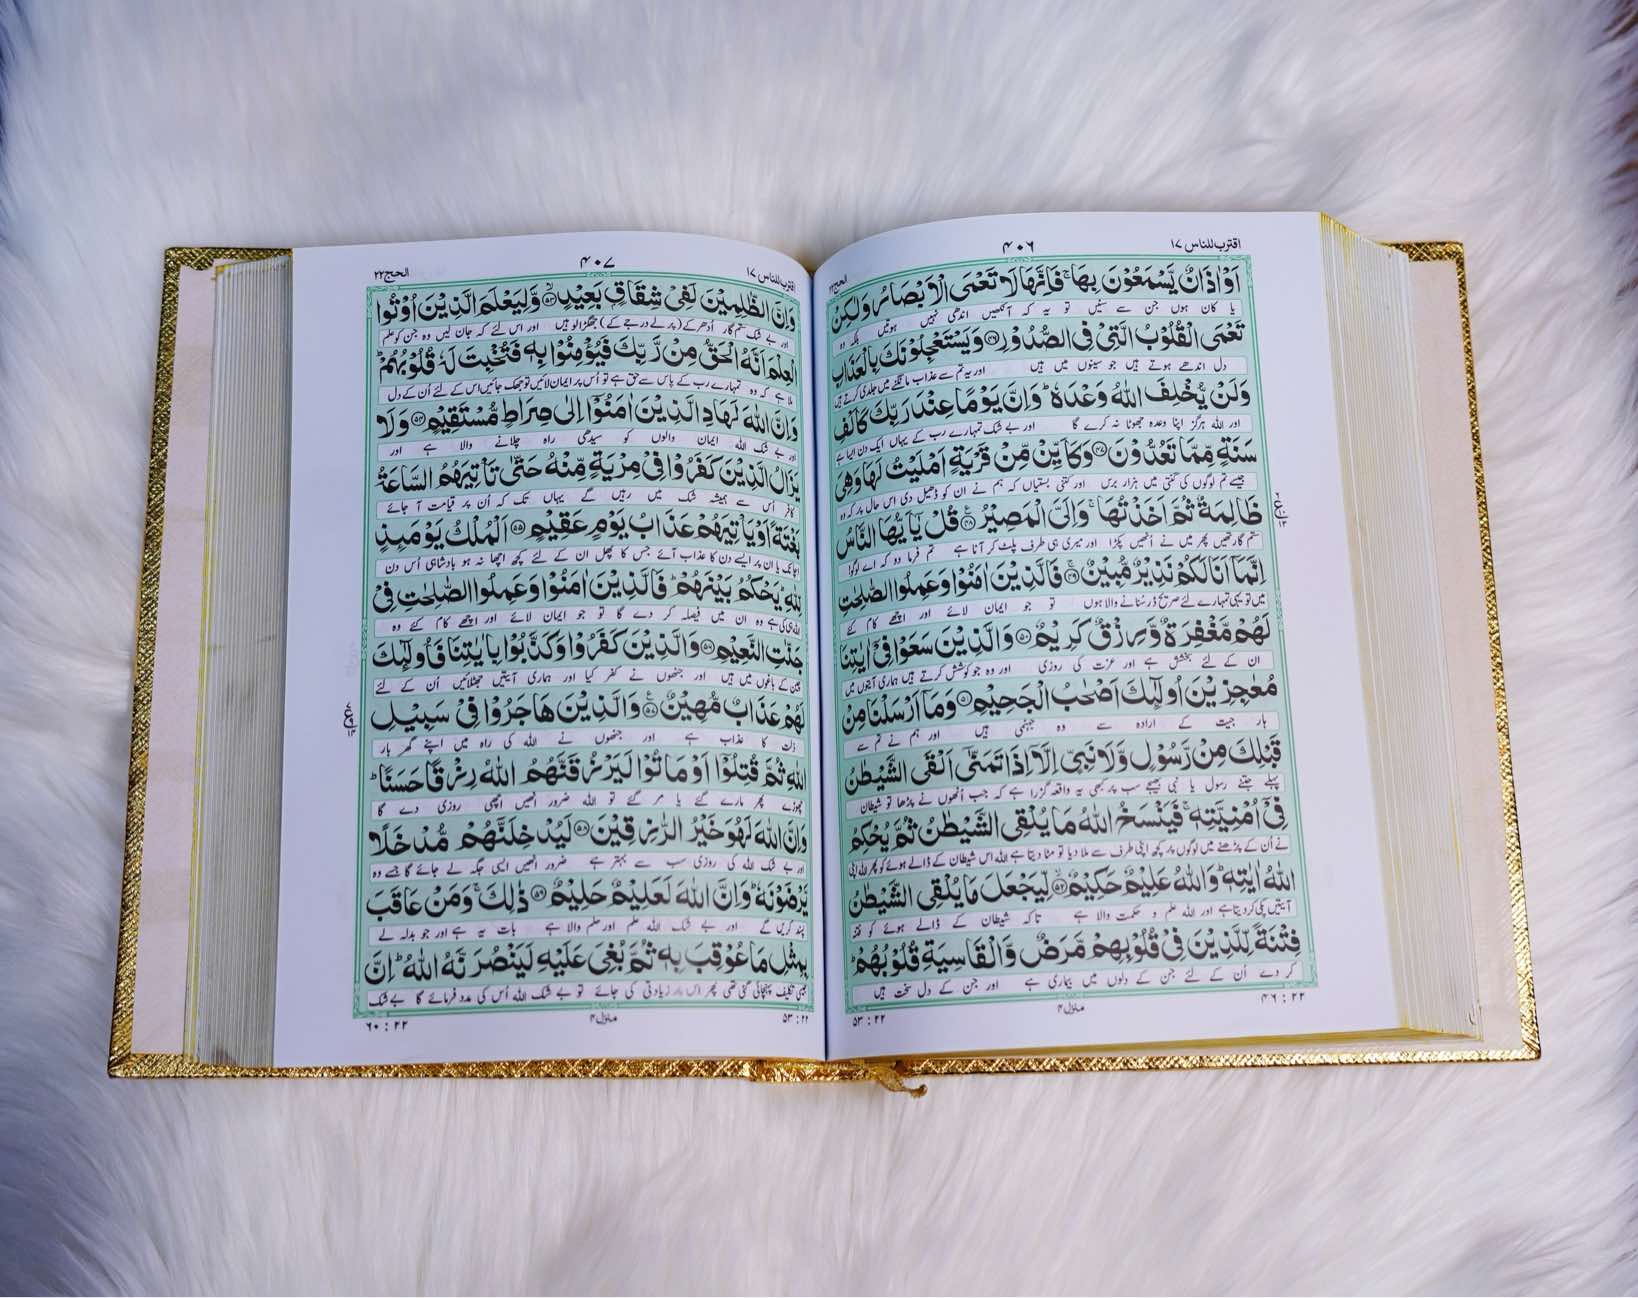 اقترب للناس ۱۷
۴۰۶
الحج ۲۲
اَوْ اٰذَانٌ يَّسْمَعُوْنَ بِهَا ۚ فَاِنَّهَا لَا تَعْمَى الْاَبْصَارُ وَلٰكِنْ
یا کان ہوں جن سے سنیں تو یہ کہ آنکھیں اندھی نہیں ہوتیں بلکہ وہ
تَعْمَى الْقُلُوْبُ الَّتِيْ فِي الصُّدُوْرِ ﴿۴۶﴾ وَيَسْتَعْجِلُوْنَكَ بِالْعَذَابِ
دل اندھے ہوتے ہیں جو سینوں میں ہیں اور یہ تم سے عذاب مانگنے میں جلدی کرتے ہیں
وَلَنْ يُّخْلِفَ اللّٰهُ وَعْدَهٗ ؕ وَاِنَّ يَوْمًا عِنْدَ رَبِّكَ كَاَلْفِ
اور اللہ ہرگز اپنا وعدہ جھوٹا نہ کرے گا اور بے شک تمہارے رب کے یہاں ایک دن ایسا ہے
سَنَةٍ مِّمَّا تَعُدُّوْنَ ﴿۴۷﴾ وَكَاَيِّنْ مِّنْ قَرْيَةٍ اَمْلَيْتُ لَهَا وَهِيَ
جیسے تم لوگوں کی گنتی میں ہزار برس اور کتنی بستیاں کہ ہم نے ان کو ڈھیل دی اس حال پر کہ وہ
ظَالِمَةٌ ثُمَّ اَخَذْتُهَا ۚ وَاِلَيَّ الْمَصِيْرُ ﴿۴۸﴾ قُلْ يٰۤاَيُّهَا النَّاسُ
ستم گار تھیں پھر میں نے انھیں پکڑا اور میری ہی طرف پلٹ کر آنا ہے تم فرما دو کہ اے لوگو!
اِنَّمَاۤ اَنَا لَكُمْ نَذِيْرٌ مُّبِيْنٌ ﴿۴۹﴾ فَالَّذِيْنَ اٰمَنُوْا وَعَمِلُوا الصّٰلِحٰتِ
میں تو یہی تمہارے لئے صریح ڈر سنانے والا ہوں تو جو ایمان لائے اور اچھے کام کئے
لَهُمْ مَّغْفِرَةٌ وَّرِزْقٌ كَرِيْمٌ ﴿۵۰﴾ وَالَّذِيْنَ سَعَوْا فِيْۤ اٰيٰتِنَا
ان کے لئے بخشش ہے اور عزت کی روزی اور وہ جو کوشش کرتے ہیں ہماری آیتوں میں
مُعٰجِزِيْنَ اُولٰٓئِكَ اَصْحٰبُ الْجَحِيْمِ ﴿۵۱﴾ وَمَاۤ اَرْسَلْنَا مِنْ
ہار جیت کے ارادہ سے وہ جہنمی ہیں اور ہم نے تم سے
قَبْلِكَ مِنْ رَّسُوْلٍ وَّلَا نَبِيٍّ اِلَّاۤ اِذَا تَمَنّٰۤى اَلْقَى الشَّيْطٰنُ
پہلے جتنے رسول یا نبی بھیجے سب پر کبھی یہ واقعہ گزرا ہے کہ جب اُنھوں نے پڑھا تو شیطان
فِيْۤ اُمْنِيَّتِهٖ ۚ فَيَنْسَخُ اللّٰهُ مَا يُلْقِي الشَّيْطٰنُ ثُمَّ يُحْكِمُ
نے اُن کے پڑھنے میں لوگوں پر کچھ اپنی طرف سے ملا دیا تو مٹا دیتا ہے اللہ اس شیطان کے ڈالے ہوئے کو پھر اللہ اپنی
اللّٰهُ اٰيٰتِهٖ ؕ وَاللّٰهُ عَلِيْمٌ حَكِيْمٌ ﴿۵۲﴾ لِّيَجْعَلَ مَا يُلْقِي الشَّيْطٰنُ
آیتیں پکی کر دیتا ہے اور اللہ علم و حکمت والا ہے تاکہ شیطان کے ڈالے ہوئے کو فتنہ
فِتْنَةً لِّلَّذِيْنَ فِيْ قُلُوْبِهِمْ مَّرَضٌ وَّالْقَاسِيَةِ قُلُوْبُهُمْ ؕ
کر دے اُن کے لئے جن کے دلوں میں بیماری ہے اور جن کے دل سخت ہیں
۲۲ : ۴۶
منزل ۴
۲۲ : ۵۳
اقترب للناس ۱۷
۴۰۷
الحج ۲۲
وَاِنَّ الظّٰلِمِيْنَ لَفِيْ شِقَاقٍۭ بَعِيْدٍ ﴿۵۳﴾ وَّلِيَعْلَمَ الَّذِيْنَ اُوْتُوا
اور بے شک ستم گار اُدھر کے (پرلے درجے کے) جھگڑالو ہیں اور اس لئے کہ جان لیں وہ جن کو علم
الْعِلْمَ اَنَّهُ الْحَقُّ مِنْ رَّبِّكَ فَيُؤْمِنُوْا بِهٖ فَتُخْبِتَ لَهٗ قُلُوْبُهُمْ ؕ
ملا ہے کہ وہ تمہارے رب کے پاس سے حق ہے تو اُس پر ایمان لائیں تو جھک جائیں اس کے لئے اُن کے دل
وَاِنَّ اللّٰهَ لَهَادِ الَّذِيْنَ اٰمَنُوْۤا اِلٰى صِرَاطٍ مُّسْتَقِيْمٍ ﴿۵۴﴾ وَلَا
اور بے شک اللہ ایمان والوں کو سیدھی راہ چلانے والا ہے اور
يَزَالُ الَّذِيْنَ كَفَرُوْا فِيْ مِرْيَةٍ مِّنْهُ حَتّٰى تَاْتِيَهُمُ السَّاعَةُ
کافر اُس سے ہمیشہ شک میں رہیں گے یہاں تک کہ اُن پر قیامت آ جائے
بَغْتَةً اَوْ يَاْتِيَهُمْ عَذَابُ يَوْمٍ عَقِيْمٍ ﴿۵۵﴾ اَلْمُلْكُ يَوْمَئِذٍ
اچانک یا ان پر ایسے دن کا عذاب آئے جس کا پھل ان کے لئے کچھ اچھا نہ ہو بادشاہی اُس دن
لِّلّٰهِ ؕ يَحْكُمُ بَيْنَهُمْ ؕ فَالَّذِيْنَ اٰمَنُوْا وَعَمِلُوا الصّٰلِحٰتِ فِيْ
اللہ ہی کی ہے وہ ان میں فیصلہ کر دے گا تو جو ایمان لائے اور اچھے کام کئے وہ
جَنّٰتِ النَّعِيْمِ ﴿۵۶﴾ وَالَّذِيْنَ كَفَرُوْا وَكَذَّبُوْا بِاٰيٰتِنَا فَاُولٰٓئِكَ
چین کے باغوں میں ہیں اور جنھوں نے کفر کیا اور ہماری آیتیں جھٹلائیں اُن کے لئے
لَهُمْ عَذَابٌ مُّهِيْنٌ ﴿۵۷﴾ وَالَّذِيْنَ هَاجَرُوْا فِيْ سَبِيْلِ
ذلت کا عذاب ہے اور جنھوں نے اللہ کی راہ میں اپنے گھر بار
اللّٰهِ ثُمَّ قُتِلُوْۤا اَوْ مَاتُوْا لَيَرْزُقَنَّهُمُ اللّٰهُ رِزْقًا حَسَنًا ؕ
چھوڑے پھر مارے گئے یا مر گئے تو اللہ ضرور انھیں اچھی روزی دے گا
وَاِنَّ اللّٰهَ لَهُوَ خَيْرُ الرّٰزِقِيْنَ ﴿۵۸﴾ لَيُدْخِلَنَّهُمْ مُّدْخَلًا
اور بے شک اللہ کی روزی سب سے بہتر ہے ضرور انھیں ایسی جگہ لے جائے گا جسے وہ
يَّرْضَوْنَهٗ ؕ وَاِنَّ اللّٰهَ لَعَلِيْمٌ حَلِيْمٌ ﴿۵۹﴾ ذٰلِكَ ۚ وَمَنْ عَاقَبَ
پسند کریں گے اور بے شک اللہ علم اور حلم والا ہے بات یہ ہے اور جو بدلہ لے
بِمِثْلِ مَا عُوْقِبَ بِهٖ ثُمَّ بُغِيَ عَلَيْهِ لَيَنْصُرَنَّهُ اللّٰهُ ؕ اِنَّ
جیسی تکلیف پہنچائی گئی تھی پھر اس پر زیادتی کی جائے تو بے شک اللہ اُس کی مدد فرمائے گا بے شک
۲۲ : ۵۳
منزل ۴
۲۲ : ۶۰